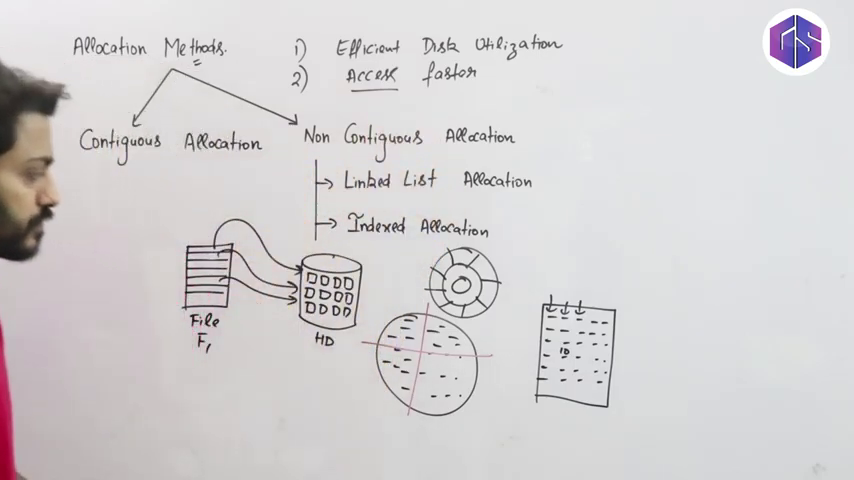 Allocation Methods.
1) Efficient Disk Utilization
2) Access faster
Contiguous Allocation
Non Contiguous Allocation
Linked List Allocation
Indexed Allocation
File
F1
HD
10
GS